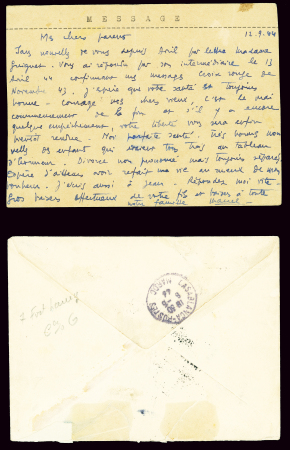 MESSAGE
12.9.44
Mes chers parents
Sans nouvelles de vous depuis Avril par lettre madame
Guignet. Vous ai répondu par son intermédiaire le 13
Avril 44 confirmant un message Croix rouge de
Novembre 43. J'espère que votre santé est toujours
bonne - courage mes chers vieux, c'est le
commencement de la fin et s'il y a encore
quelque empêchement, votre liberté vous sera enfin
bientôt rendue. Moi parfaite santé. Très bonnes nou
velles des enfant qui toujours au tableau
d'honneur. Divorce non prononcé mais toujours séparés
Espère d'ailleurs avoir refait ma vie au mieux de mes
bonheur. J'écris aussi à Jean. Répondez moi vite.
Gros baisers affectueux de votre fils et baisers à toute
notre famille
CASABLANCA-POSTES
MAROC